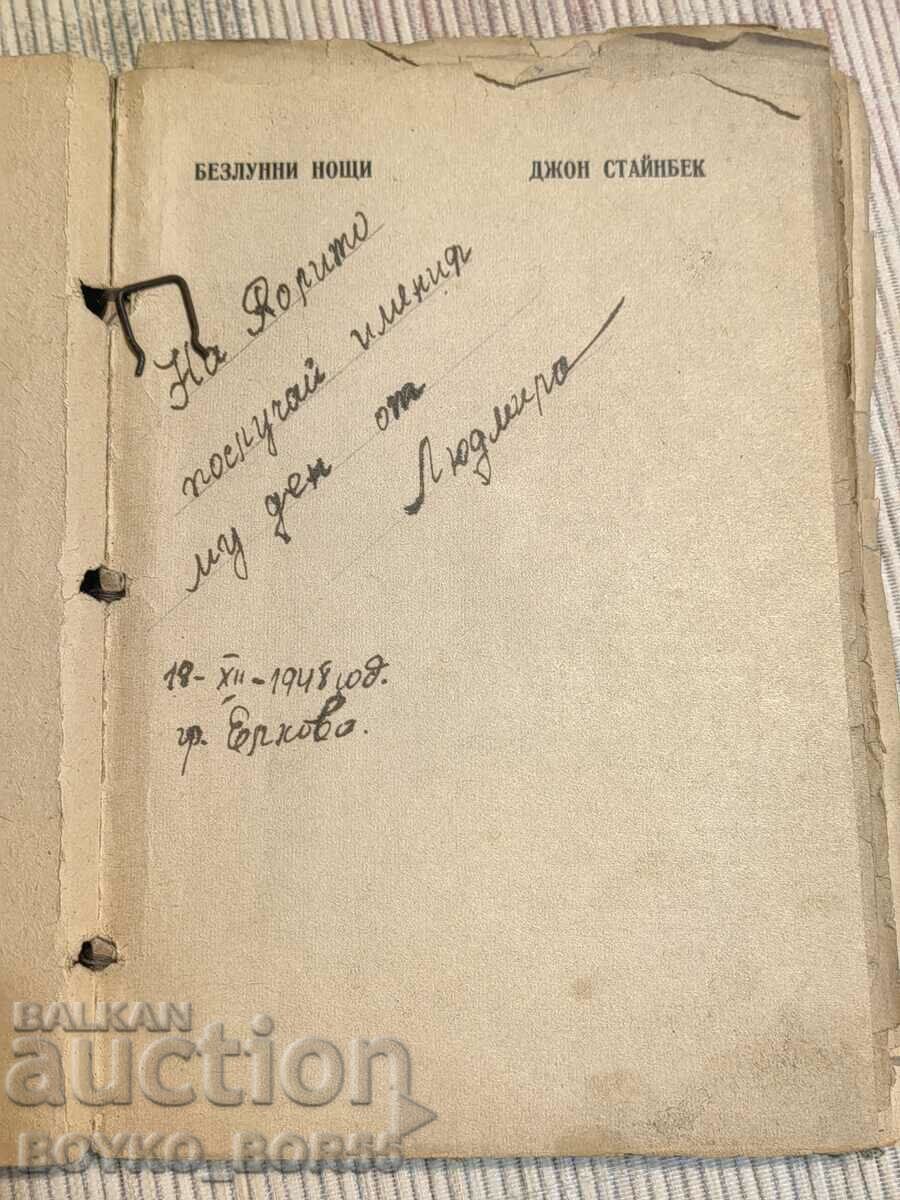 БЕЗЛУННИ НОЩИ ДЖОН СТАЙНБЕК
На
случай имения
му ден от
Людмира
18-XII-1948 год.
гр.
BALKAN
auction
BOYKO_BOR55